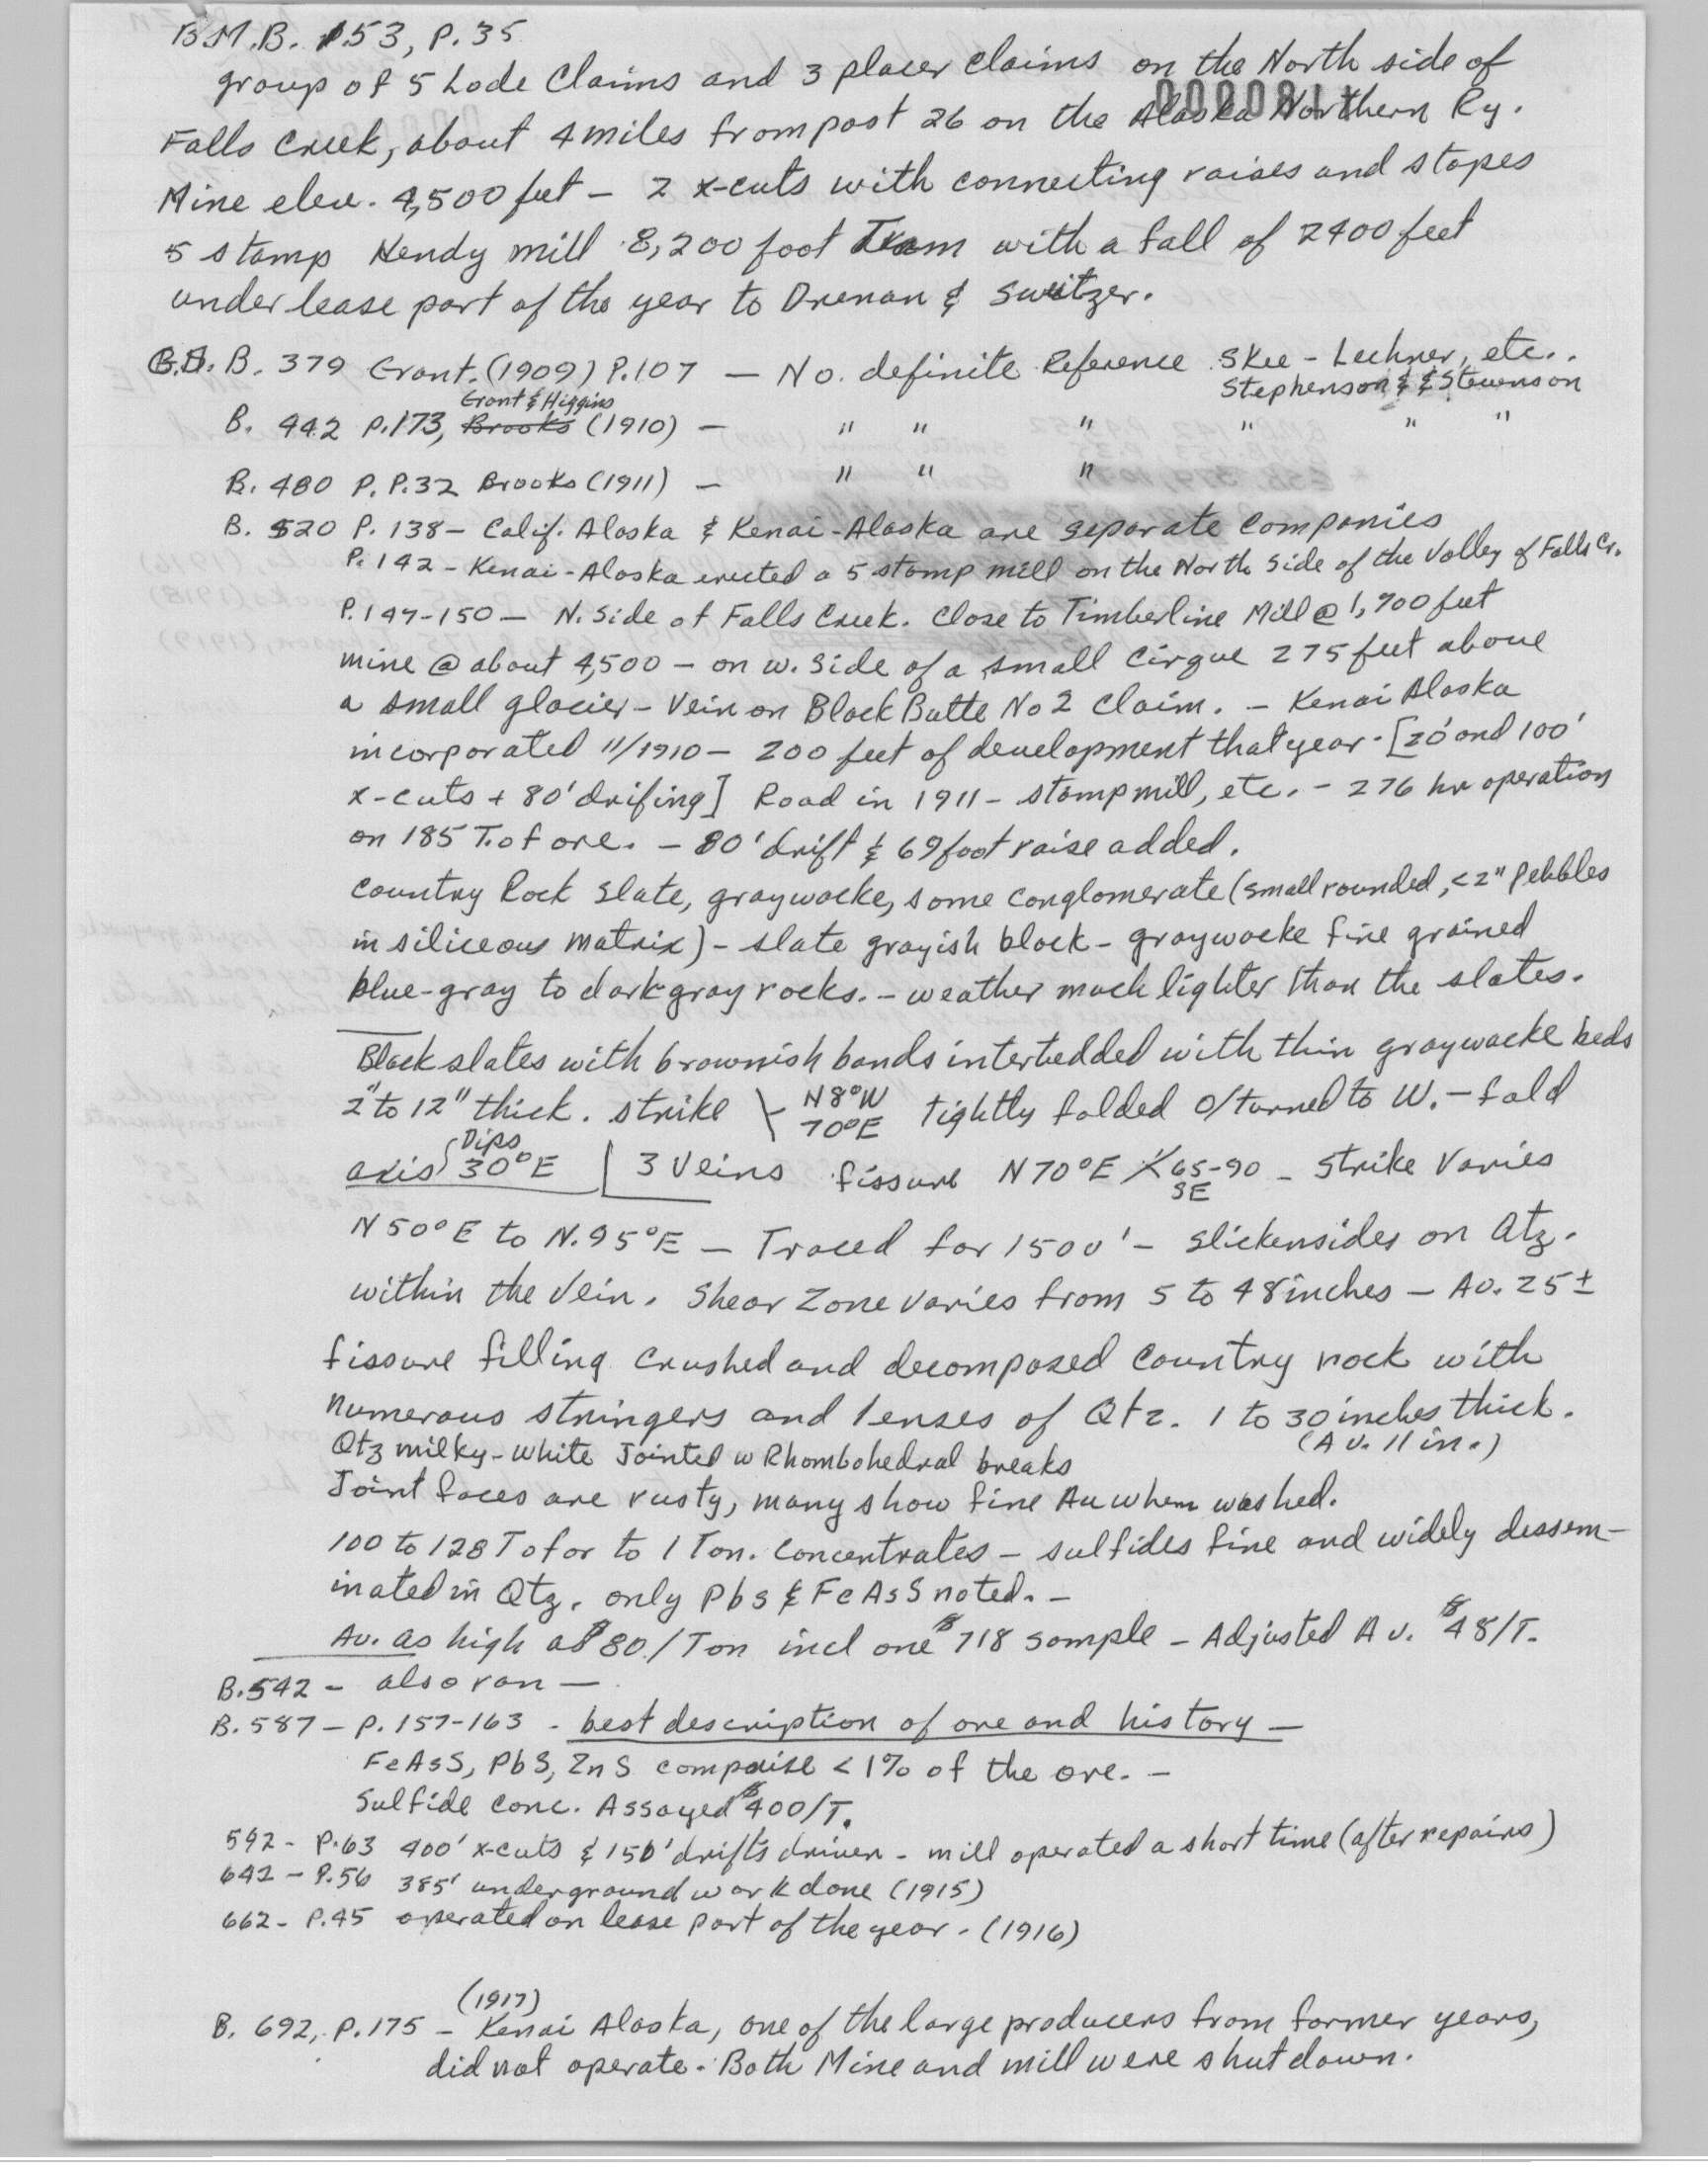 B.M.B. 153, P.35
group of 5 Lode Claims and 3 placer claims on the North side of
000081
Falls Creek, about 4 miles from post 26 on the Alaska Northern Ry.
Mine elev. 4,500 feet - 2 x-cuts with connecting raises and stopes
5 stamp Hendy mill 8,200 foot Tram with a fall of 2400 feet
under lease part of the year to Drenan & Sweitzer.
B. 379 Grant. (1909) P.107 - No. definite Reference Skee - Lechner, etc..
Stephenson & Stevenson
Grant & Higgins
B. 442 P.173, Brooks (1910) - " " " " " "
B. 480 P. P.32 Brooks (1911) - " " "
B. 520 P. 138 - Calif. Alaska & Kenai-Alaska are separate Companies
P. 142 - Kenai-Alaska erected a 5 stamp mill on the North Side of the Valley of Falls Cr.
P.147-150 - N. Side of Falls Creek. Close to Timberline Mill @ 1,900 feet
mine @ about 4,500 - on w. Side of a small Cirque 275 feet above
a small glacier - Vein on Black Butte No 2 Claim. - Kenai Alaska
incorporated 11/1910 - 200 feet of development that year - [20' and 100'
x-cuts + 80' drifing] Road in 1911 - stamp mill, etc. - 276 hr operation
on 185 T. of ore. - 80' drift & 69 foot raise added.
Country Rock Slate, graywacke, some conglomerate (small rounded, <2" Pebbles
in siliceous matrix) - slate grayish black - graywacke fine grained
blue-gray to dark gray rocks. - weather much lighter than the slates.
Black slates with brownish bands interbedded with thin graywacke beds
2" to 12" thick. strike N8°W 70°E Tightly folded O/turned to W. - fold
axis Dips 30°E | 3 Veins fissure N70°E 65-90 SE - Strike Varies
N50°E to N.95°E - Traced for 1500' - Slickensides on Qtz.
within the Vein. Shear Zone varies from 5 to 48 inches - Av. 25±
fissure filling crushed and decomposed Country rock with
numerous stringers and lenses of Qtz. 1 to 30 inches thick.
(Av. 11 in.)
Qtz milky-white Jointed w Rhombohedral breaks
Joint faces are rusty, many show fine Au when washed.
100 to 128 T of or to 1 Ton. Concentrates - sulfides fine and widely dessem-
inated in Qtz. only PbS & FeAsS noted. -
Av. as high as $80./Ton incl one $718 sample - Adjusted Av. $48/T.
B.542 - also ran -
B. 587 - P. 157-163 - best description of ore and history -
FeAsS, PbS, ZnS compraise < 1% of the ore. -
Sulfide Conc. Assayed $400/T.
592 - P.63 400' x-cuts & 150' drifts driven - mill operated a short time (after repairs)
642 - P.56 385' underground work done (1915)
662 - P.45 operated on lease part of the year - (1916)
(1917)
B. 692, P.175 - Kenai Alaska, one of the large producers from former years,
did not operate. Both Mine and mill were shut down.